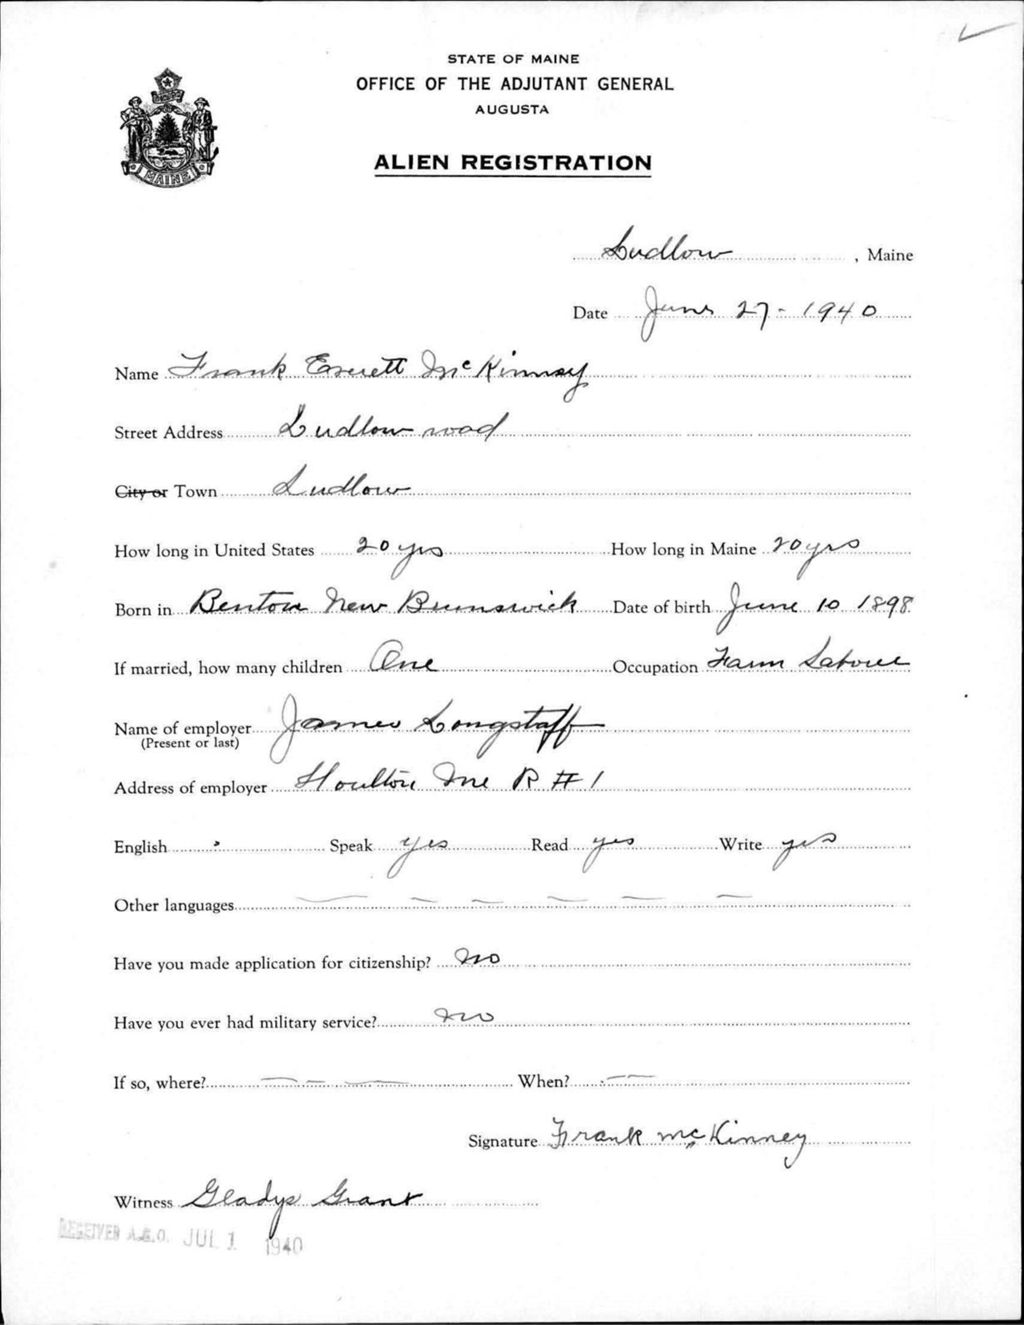 STATE OF MAINE
OFFICE OF THE ADJUTANT GENERAL
AUGUSTA
MAINE
ALIEN REGISTRATION
Ludlow, Maine
Date June 27 - 1940
Name Frank Everett McKinney
Street Address Ludlow road
City or Town Ludlow
How long in United States 20 yrs How long in Maine 20 yrs
Born in Benton New Brunswick Date of birth June 10 1898
If married, how many children One Occupation Farm Laborer
Name of employer James Longstaff
(Present or last)
Address of employer Houlton Me R # 1
English Speak yes Read yes Write yes
Other languages — — — — — —
Have you made application for citizenship? No
Have you ever had military service? No
If so, where? — — — When? —
Signature Frank McKinney
Witness Gladys Grant
RECEIVED A.G.O. JUL 1 1940